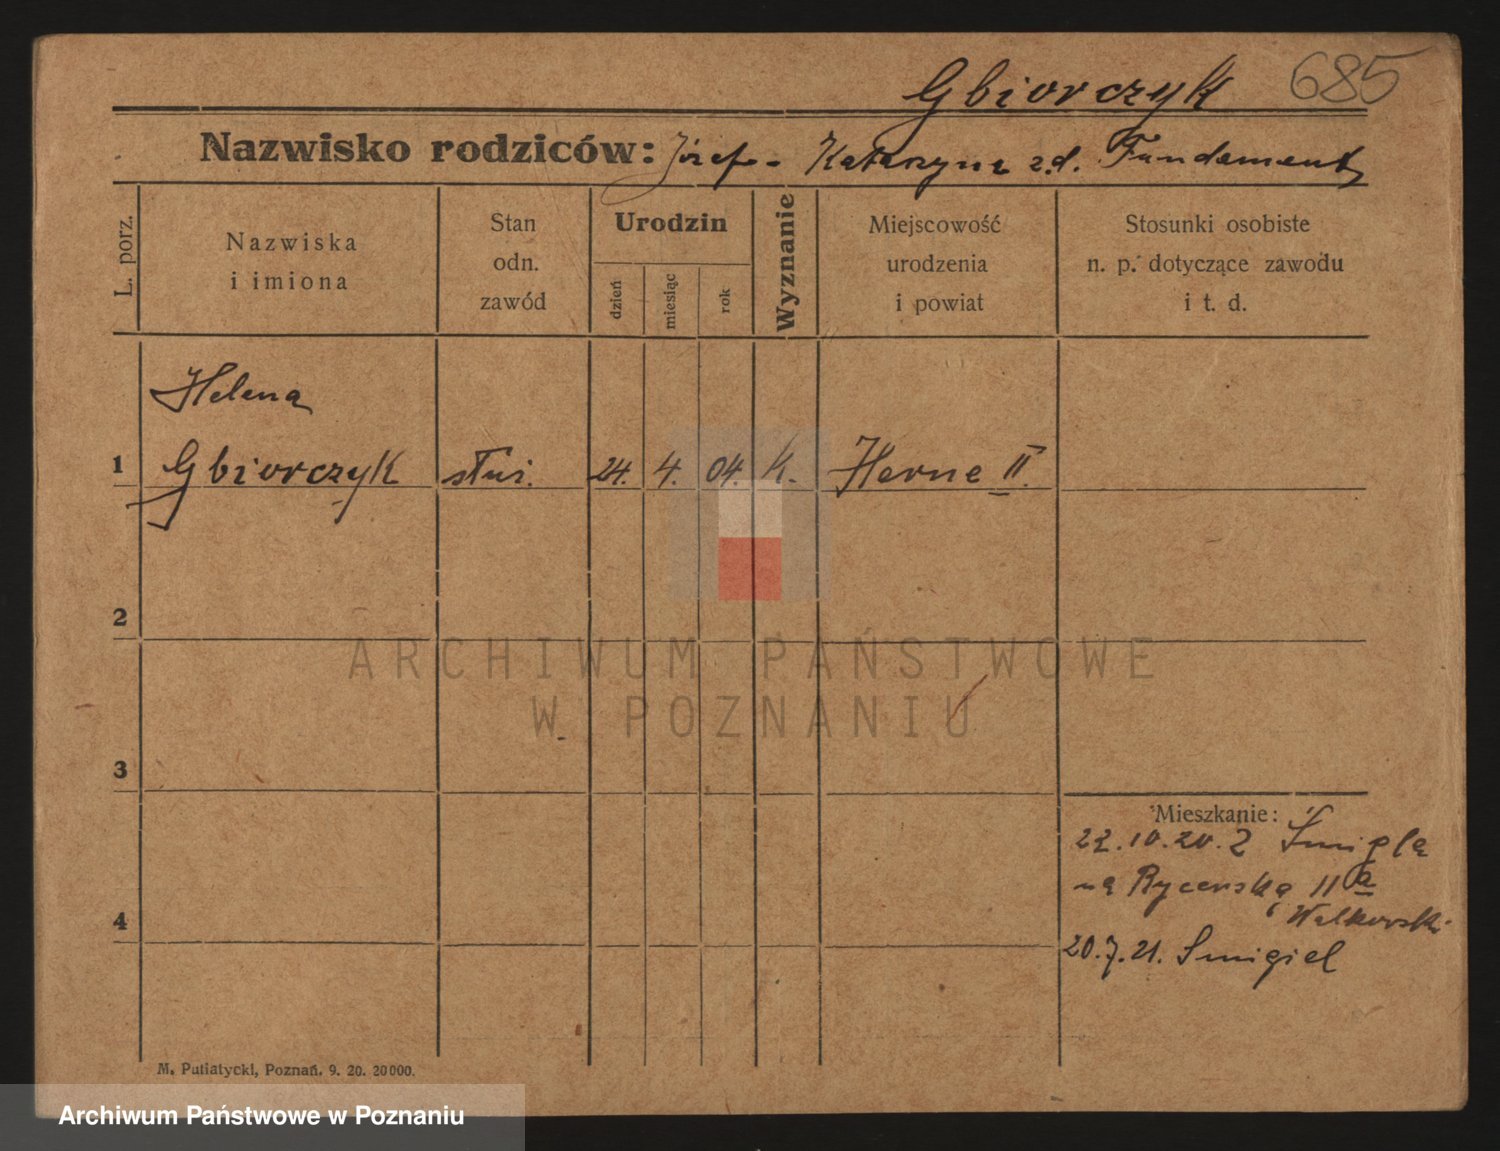 Gbiorczyk 685
Nazwisko rodziców: Józef - Katarzyna z.d. Fundament
L. porz.
Nazwiska
i imiona
Stan
odn.
zawód
Urodzin
dzień
miesiąc
rok
Wyznanie
Miejscowość
urodzenia
i powiat
Stosunki osobiste
n. p. dotyczące zawodu
i t. d.
Helena
1 Gbiorczyk służ. 24. 4. 04. K. Herne II.
2
ARCHIWUM PAŃSTWOWE
W POZNANIU
3
Mieszkanie:
22.10.20. z Śmigla
na Rycerską 11a
Walkowski
4
20.7.21. Śmigiel
M. Putiatycki, Poznań. 9. 20. 20000.
Archiwum Państwowe w Poznaniu